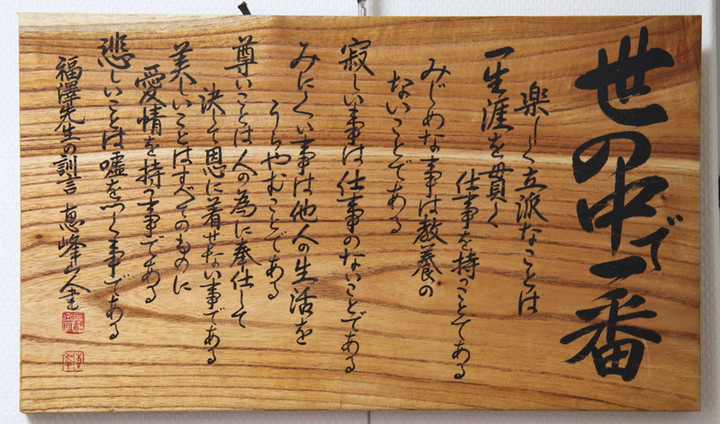 世の中で一番
楽しく立派なことは
一生涯を貫く
仕事を持つことである
みじめな事は教養の
ないことである
寂しい事は仕事のないことである
みにくい事は他人の生活を
うらやむことである
尊いことは人の為に奉仕して
決して恩に着せない事である
美しいことはすべてのものに
愛情を持つ事である
悲しいことは嘘をつく事である
福澤先生の訓言 恵峰山人書